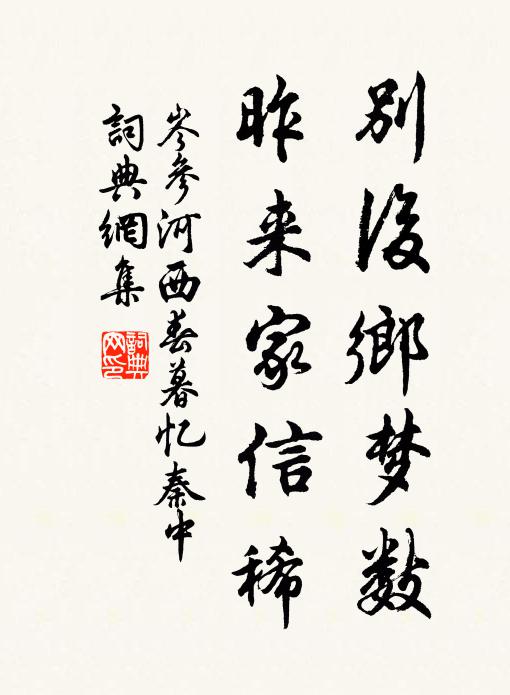 别後鄉梦數
昨来家信稀
岑參河西春暮忆秦中
詞典網集
詞典网印